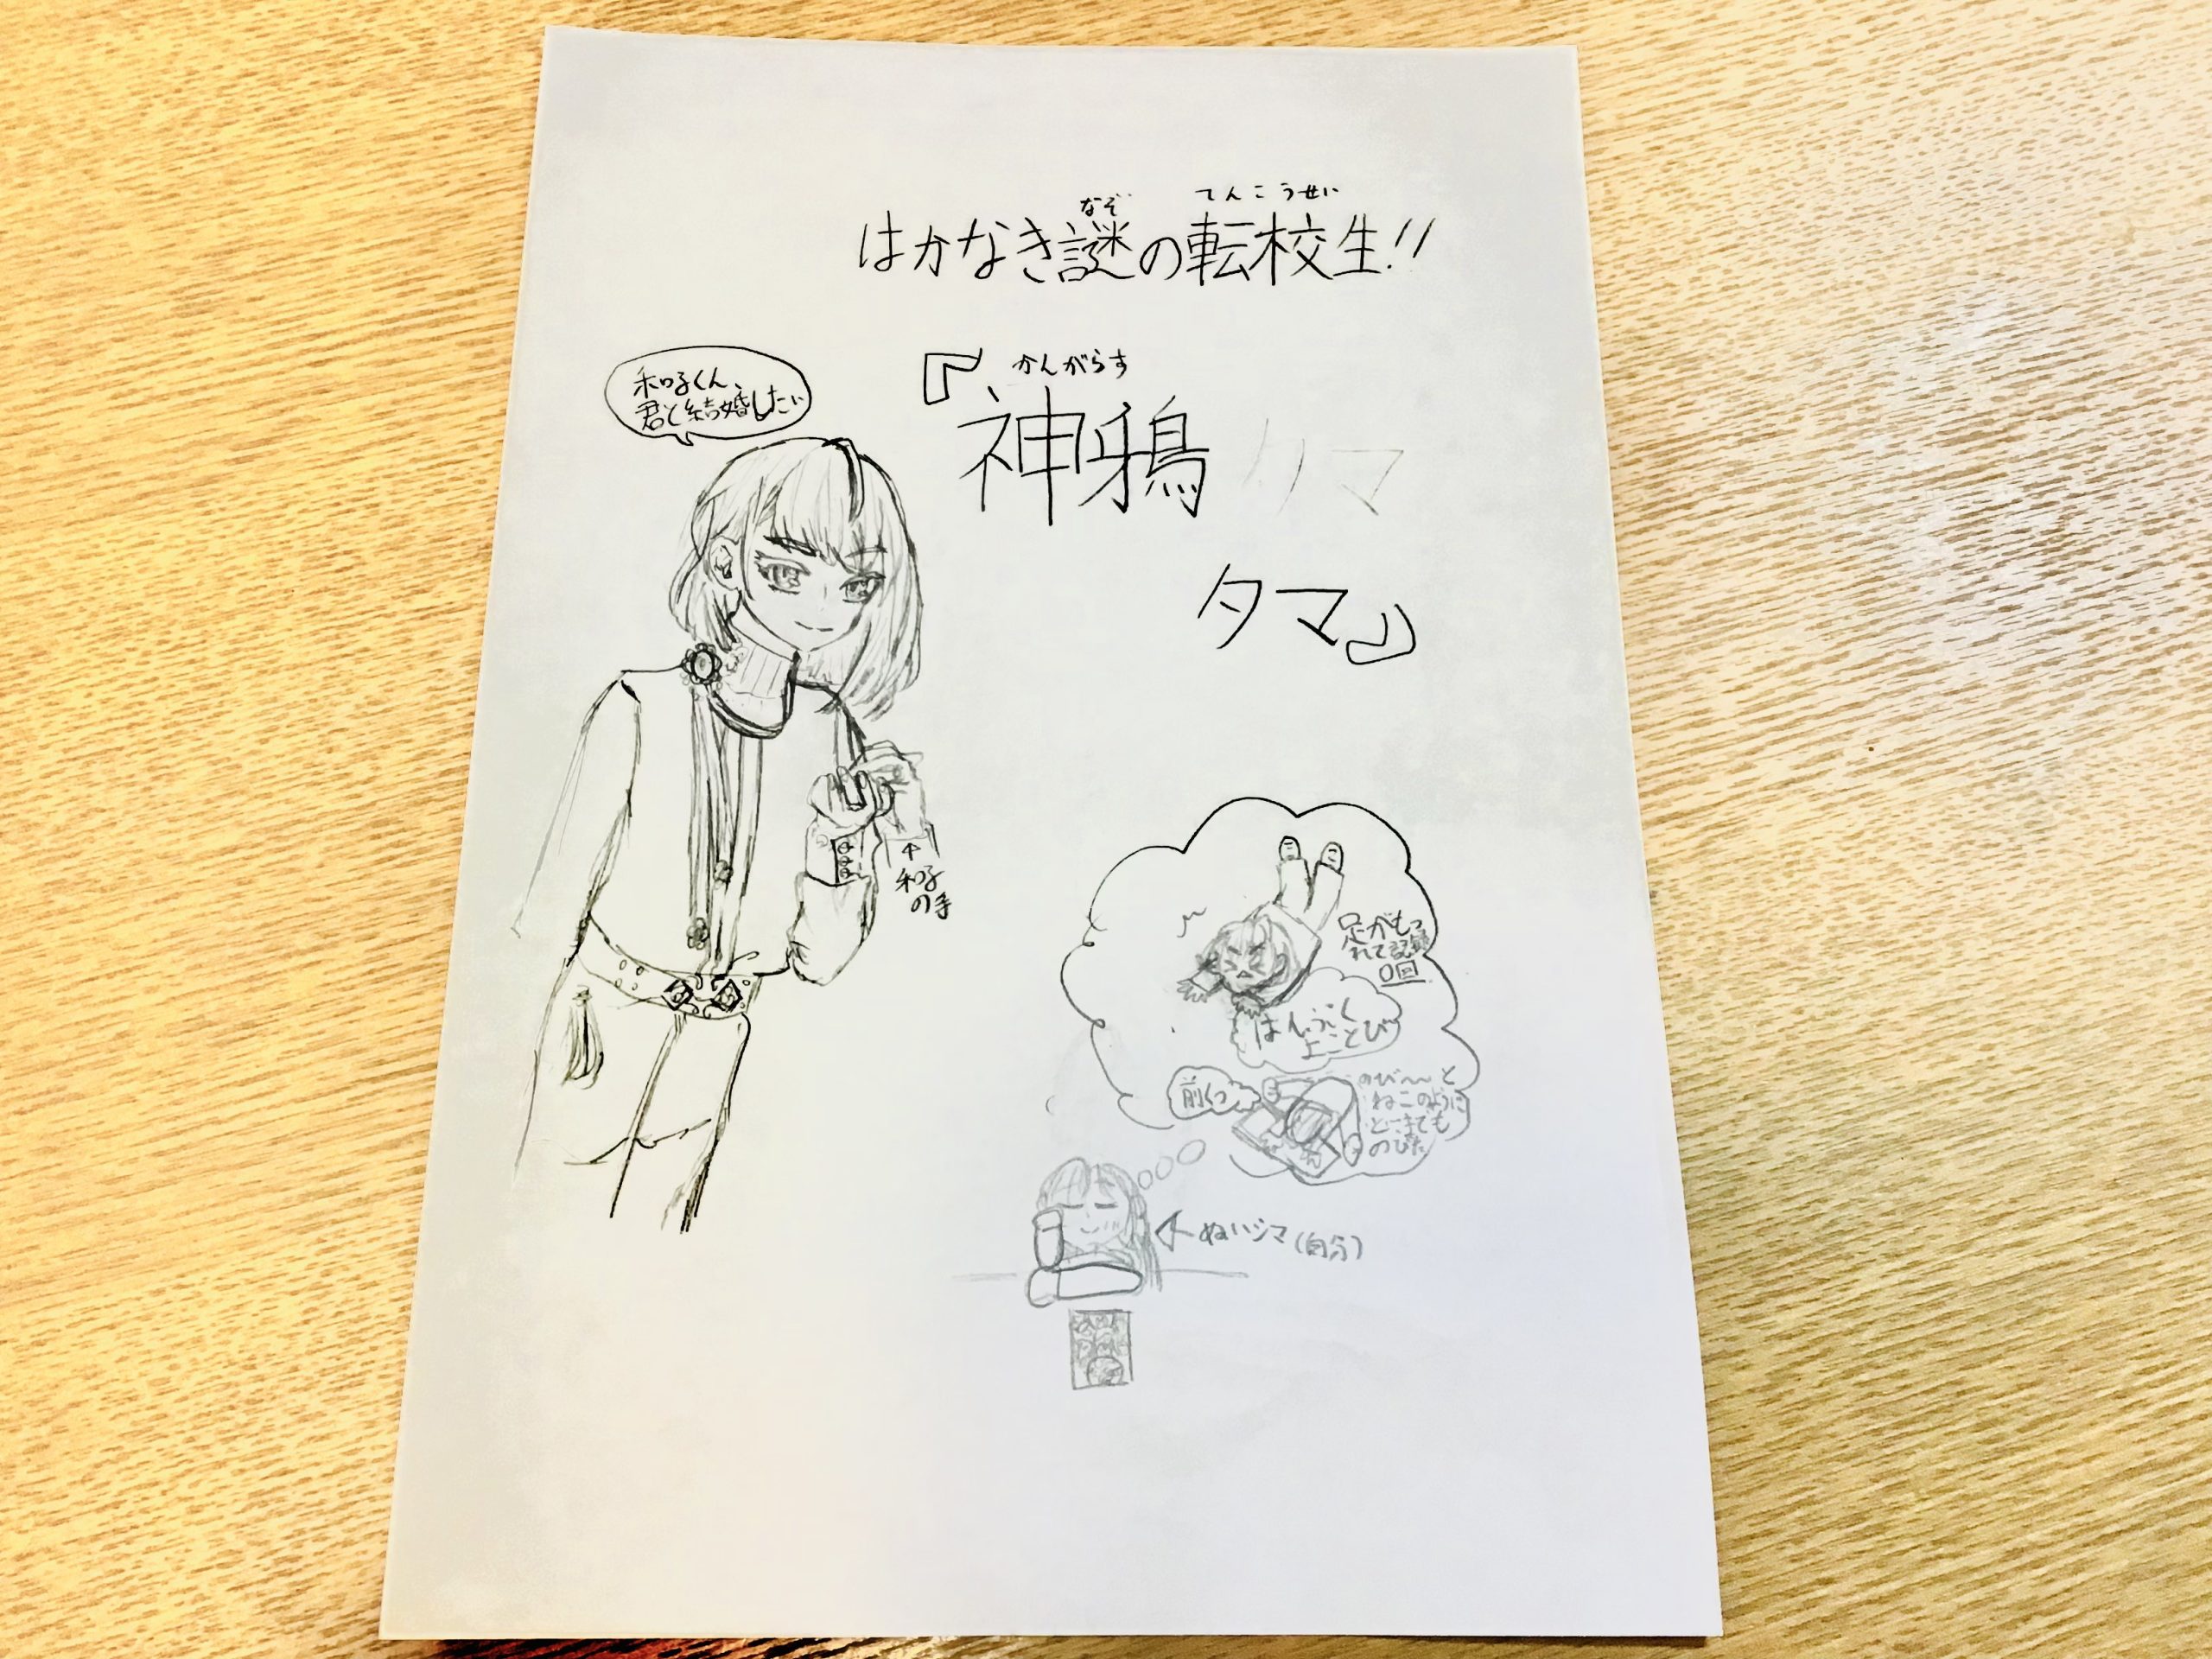 なぞ てんこうせい
はかなき謎の転校生!!
『 かんがらす
神鴉
タマ
タマ』
和子くん、
君と結婚したい
↑
和子
の手
足がもつ
れて記録
0回
はんぷく
よことび
前くつ
のび〜〜と
ねこのように
どこまでも
のびた
ぬいシマ(自分)